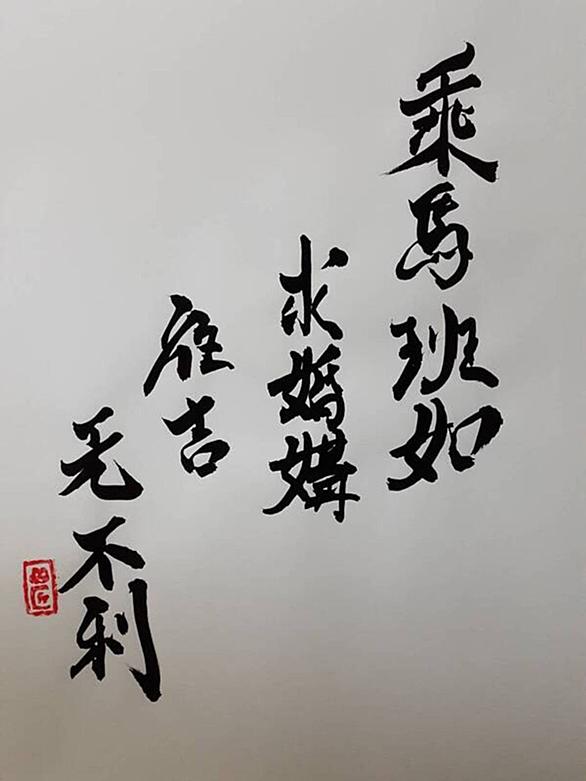 乘馬班如
求婚媾
往吉
无不利